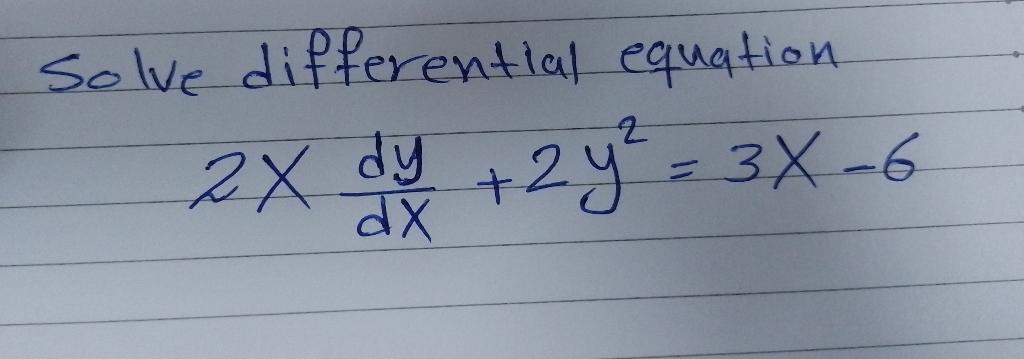 Solve differential equation
2X dy/dX + 2y² = 3X - 6